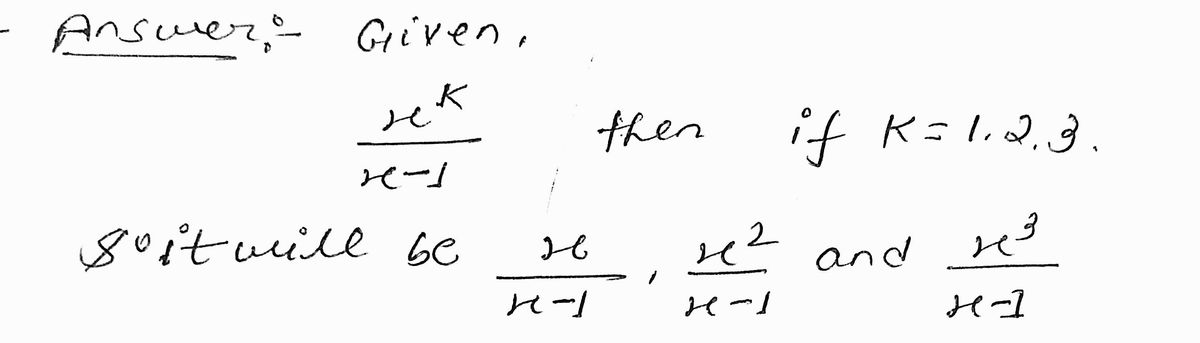 - Answer:- Given,
x^K/(x-1) then if K=1,2,3.
So it will be x/(x-1), x^2/(x-1) and x^3/(x-1)